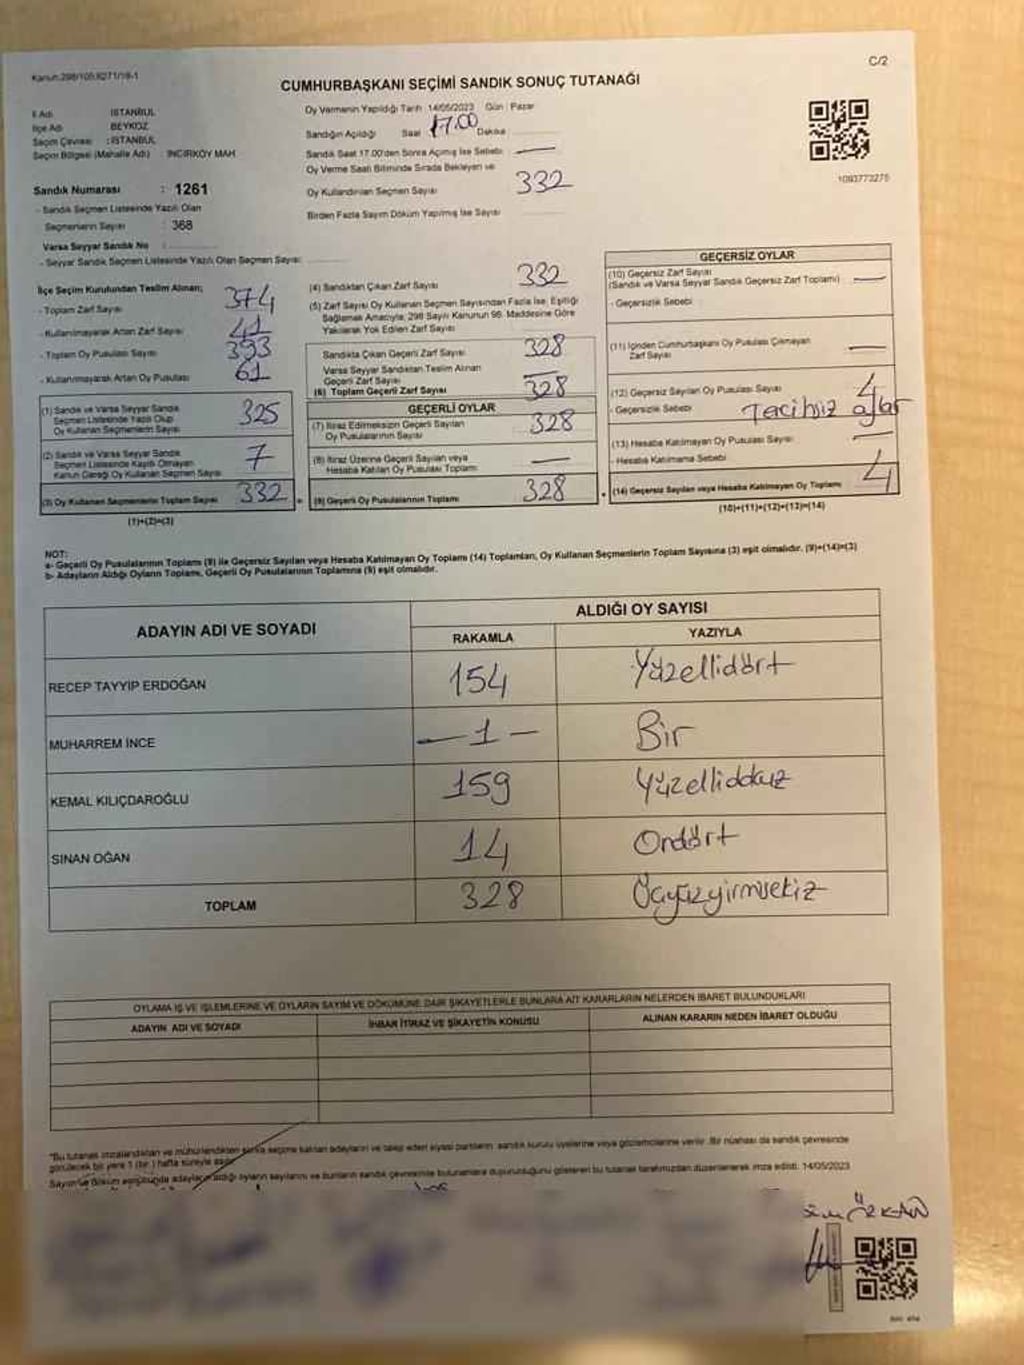 Kanun:298/105,6271/19-1
C/2
CUMHURBAŞKANI SEÇİMİ SANDIK SONUÇ TUTANAĞI
İl Adı : İSTANBUL
İlçe Adı : BEYKOZ
Seçim Çevresi : İSTANBUL
Seçim Bölgesi (Mahalle Adı) : İNCİRKÖY MAH.
Sandık Numarası : 1261
- Sandık Seçmen Listesinde Yazılı Olan
Seçmenlerin Sayısı : 368
Varsa Seyyar Sandık No :
- Seyyar Sandık Seçmen Listesinde Yazılı Olan Seçmen Sayısı:
Oy Vermenin Yapıldığı Tarih : 14/05/2023 Gün : Pazar
Sandığın Açıldığı Saat 17.00 Dakika
Sandık Saat 17.00'den Sonra Açılmış İse Sebebi: —
Oy Verme Saati Bitiminde Sırada Bekleyen ve
Oy Kullandırılan Seçmen Sayısı 332
Birden Fazla Sayım Döküm Yapılmış İse Sayısı
1093773275
İlçe Seçim Kurulundan Teslim Alınan;
- Toplam Zarf Sayısı 374
- Kullanılmayarak Artan Zarf Sayısı 41
- Toplam Oy Pusulası Sayısı 393
- Kullanılmayarak Artan Oy Pusulası 61
(1) Sandık ve Varsa Seyyar Sandık
Seçmen Listesinde Yazılı Olup
Oy Kullanan Seçmenlerin Sayısı 325
(2) Sandık ve Varsa Seyyar Sandık
Seçmen Listesinde Kayıtlı Olmayan
Kanun Gereği Oy Kullanan Seçmen Sayısı 7
(3) Oy Kullanan Seçmenlerin Toplam Sayısı 332 =
(1)+(2)=(3)
(4) Sandıktan Çıkan Zarf Sayısı 332
(5) Zarf Sayısı Oy Kullanan Seçmen Sayısından Fazla İse, Eşitliği
Sağlamak Amacıyla; 298 Sayılı Kanunun 98. Maddesine Göre
Yakılarak Yok Edilen Zarf Sayısı
Sandıkta Çıkan Geçerli Zarf Sayısı 328
Varsa Seyyar Sandıktan Teslim Alınan
Geçerli Zarf Sayısı —
(6) Toplam Geçerli Zarf Sayısı 328
GEÇERLİ OYLAR
(7) İtiraz Edilmeksizin Geçerli Sayılan
Oy Pusulalarının Sayısı 328
(8) İtiraz Üzerine Geçerli Sayılan veya
Hesaba Katılan Oy Pusulası Toplamı —
(9) Geçerli Oy Pusulalarının Toplamı 328 +
GEÇERSİZ OYLAR
(10) Geçersiz Zarf Sayısı
(Sandık ve Varsa Seyyar Sandık Geçersiz Zarf Toplamı) —
- Geçersizlik Sebebi
(11) İçinden Cumhurbaşkanı Oy Pusulası Çıkmayan
Zarf Sayısı —
(12) Geçersiz Sayılan Oy Pusulası Sayısı 4
- Geçersizlik Sebebi Tercihsiz oylar
(13) Hesaba Katılmayan Oy Pusulası Sayısı —
- Hesaba Katılmama Sebebi
(14) Geçersiz Sayılan veya Hesaba Katılmayan Oy Toplamı 4
(10)+(11)+(12)+(13)=(14)
NOT:
a- Geçerli Oy Pusulalarının Toplamı (9) ile Geçersiz Sayılan veya Hesaba Katılmayan Oy Toplamı (14) Toplamları, Oy Kullanan Seçmenlerin Toplam Sayısına (3) eşit olmalıdır. (9)+(14)=(3)
b- Adayların Aldığı Oyların Toplamı, Geçerli Oy Pusulalarının Toplamına (9) eşit olmalıdır.
ADAYIN ADI VE SOYADI
ALDIĞI OY SAYISI
RAKAMLA YAZIYLA
RECEP TAYYIP ERDOĞAN 154 Yüzellidört
MUHARREM İNCE —1— Bir
KEMAL KILIÇDAROĞLU 159 Yüzellidokuz
SİNAN OĞAN 14 Ondört
TOPLAM 328 Üçyüzyirmisekiz
OYLAMA İŞ VE İŞLEMLERİNE VE OYLARIN SAYIM VE DÖKÜMÜNE DAİR ŞİKAYETLERLE BUNLARA AİT KARARLARIN NELERDEN İBARET BULUNDUKLARI
ADAYIN ADI VE SOYADI İHBAR İTİRAZ VE ŞİKAYETİN KONUSU ALINAN KARARIN NEDEN İBARET OLDUĞU
"Bu tutanak imzalandıktan ve mühürlendikten sonra seçime katılan adayların ve talep eden siyasi partilerin sandık kurulu üyelerine veya gözlemcilerine verilir. Bir nüshası da sandık çevresinde
görülecek bir yere 1 (bir) hafta süreyle asılır.
Sayım ve döküm sonucunda adayların aldığı oyların sayılarını ve bunların sandık çevresinde bulunanlara duyurulduğunu gösteren bu tutanak tarafımızdan düzenlenerek imza edildi. 14/05/2023
ÖZKAN